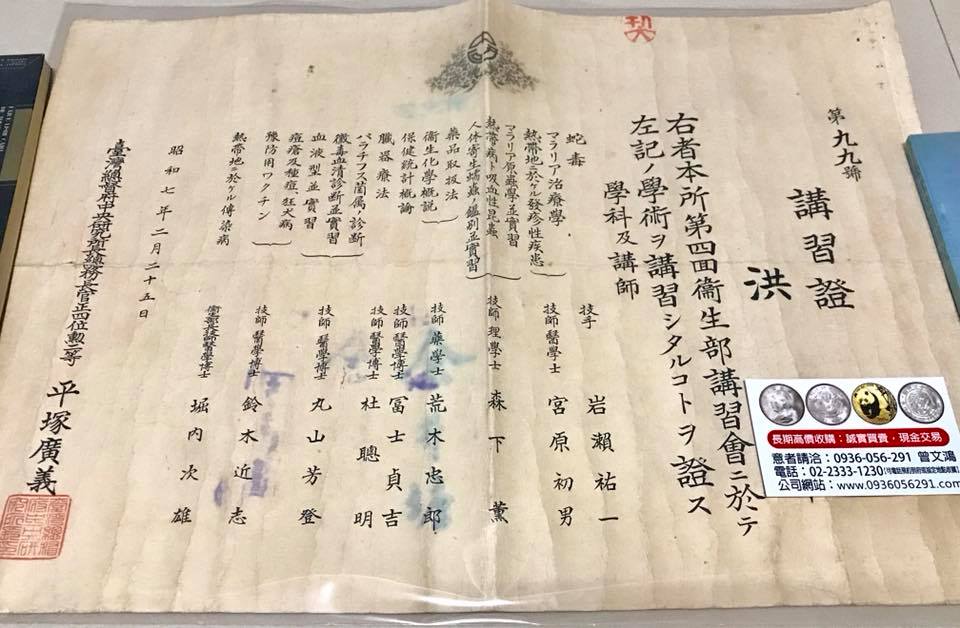 第九九號
講習證
洪
右者本所第四回衞生部講習會ニ於テ
左記ノ學術ヲ講習シタルコトヲ證ス
學科及講師
蛇毒
技手 岩瀨祐一
マラリア治療學
熱帶地ニ於ケル發疹性疾患
技師 醫學士 宮原初男
マラリア原蟲學並實習
熱帶病ト吸血性昆蟲
人体寄生蠕蟲ノ鑑別並實習
技師 理學士 森下薰
藥品取扱法
衞生化學概說
技師 藥學士 荒木忠郎
保健統計概論
技師 醫學博士 冨士貞吉
臟器療法
技師 醫學博士 杜聰明
パラチフス菌屬ノ診斷
黴毒血清診斷並實習
血液型並實習
技師 醫學博士 丸山芳登
痘瘡及種痘、狂犬病
豫防用ワクチン
技師 醫學博士 鈴木近志
熱帶地ニ於ケル傳染病
衞生部長技師醫學博士 堀內次雄
昭和七年二月二十五日
臺灣總督府中央硏究所長總務長官正四位勳二等 平塚廣義
長期高價收購：誠實買賣，現金交易
意者請洽：0936-056-291 曾文鴻
電話：02-2333-1230
公司網站：www.0936056291.com